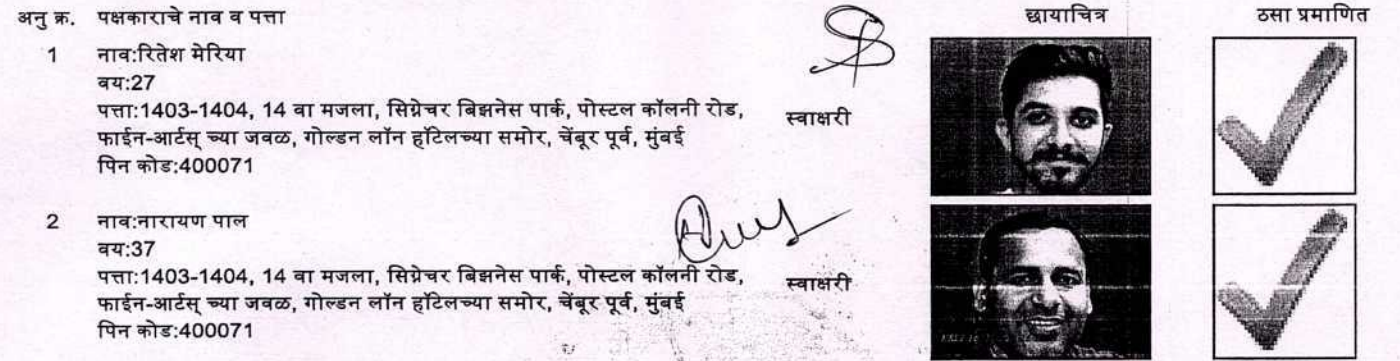 अनु क्र. पक्षकाराचे नाव व पत्ता छायाचित्र ठसा प्रमाणित
1 नाव:रितेश मेरिया
वय:27
पत्ता:1403-1404, 14 वा मजला, सिग्नेचर बिझनेस पार्क, पोस्टल कॉलनी रोड,
स्वाक्षरी
फाईन-आर्टस् च्या जवळ, गोल्डन लॉन हॉटेलच्या समोर, चेंबूर पूर्व, मुंबई
पिन कोड:400071
2 नाव:नारायण पाल
वय:37
पत्ता:1403-1404, 14 वा मजला, सिग्नेचर बिझनेस पार्क, पोस्टल कॉलनी रोड,
स्वाक्षरी
फाईन-आर्टस् च्या जवळ, गोल्डन लॉन हॉटेलच्या समोर, चेंबूर पूर्व, मुंबई
पिन कोड:400071